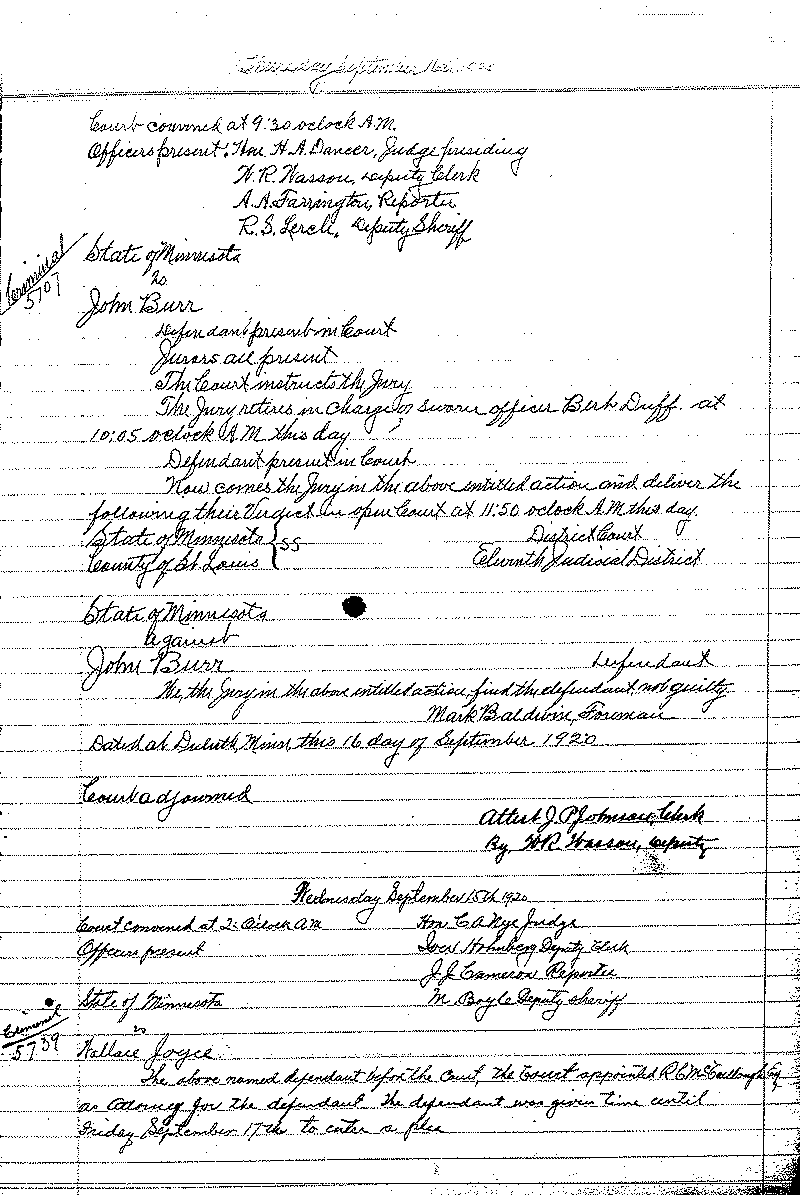 Thursday September 16th 1920
Court convened at 9:30 oclock A.M.
Officers present: Hon. H.A. Dancer, Judge presiding
W.R. Wasson, Deputy Clerk
A.A. Farrington, Reporter
R.S. Lerch, Deputy Sheriff
Criminal
5707
State of Minnesota
vs
John Burr
Defendant present in Court
Jurors all present
The Court instructs the Jury
The Jury retires in charge of sworn officer Bert Duff. at
10:05 oclock A.M. this day
Defendant present in Court
Now comes the Jury in the above entitled action and deliver the
following their Verdict in open Court at 11:50 oclock A.M this day.
State of Minnesota } SS District Court
County of St. Louis Eleventh Judicial District
State of Minnesota
against
John Burr Defendant
We, the Jury in the above entitled action, find the defendant not guilty
Mark Baldwin, Foreman
Dated at Duluth, Minn, this 16 day of September 1920
Court adjourned
Attest J. P. Johnson, Clerk
By W R Wasson, Deputy
Wednesday September 15th 1920
Court convened at 2: Oclock A M Hon C A Nye Judge
Officers present Iver Holmberg Deputy Clerk
J J Cameron Reporter
State of Minnesota M Boyle Deputy Sheriff
Criminal
5739
vs
Wallace Joyce
The above named defendant before the Court, the Court appointed R C McCullough Esq
as Attorney for the defendant The defendant was given time until
Friday September 17th to enter a plea